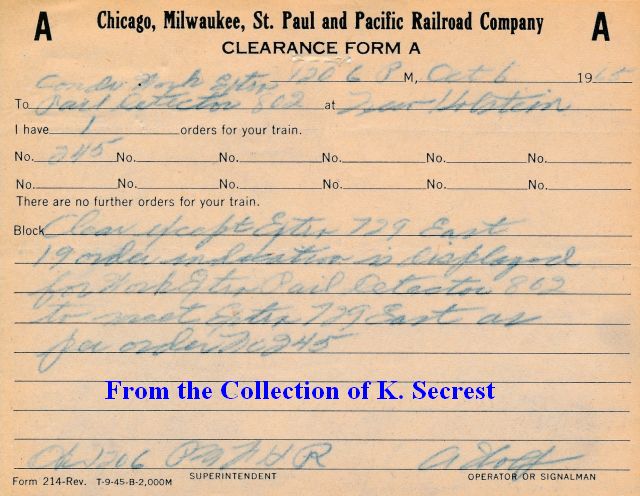 A Chicago, Milwaukee, St. Paul and Pacific Railroad Company A
CLEARANCE FORM A
1206 P M, Oct 6 1965
Condr Work Extra
To Rail Detector 802 at New Holstein
I have 1 orders for your train.
No. 245 No. No. No. No. No.
No. No. No. No. No. No.
There are no further orders for your train.
Block Clear except Extra 729 East
19 order indication is displayed
for Work Extra Rail Detector 802
to meet Extra 729 East as
per order No 245
From the Collection of K. Secrest
Ok 1206 P M
SUPERINTENDENT OPERATOR OR SIGNALMAN
Form 214-Rev. T-9-45-B-2,000M